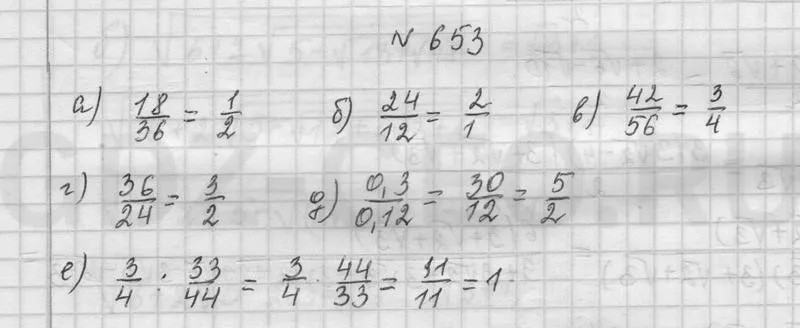 N 653
а) 18/36 = 1/2 б) 24/12 = 2/1 в) 42/56 = 3/4
г) 36/24 = 3/2 д) 0,3/0,12 = 30/12 = 5/2
е) 3/4 : 33/44 = 3/4 · 44/33 = 11/11 = 1